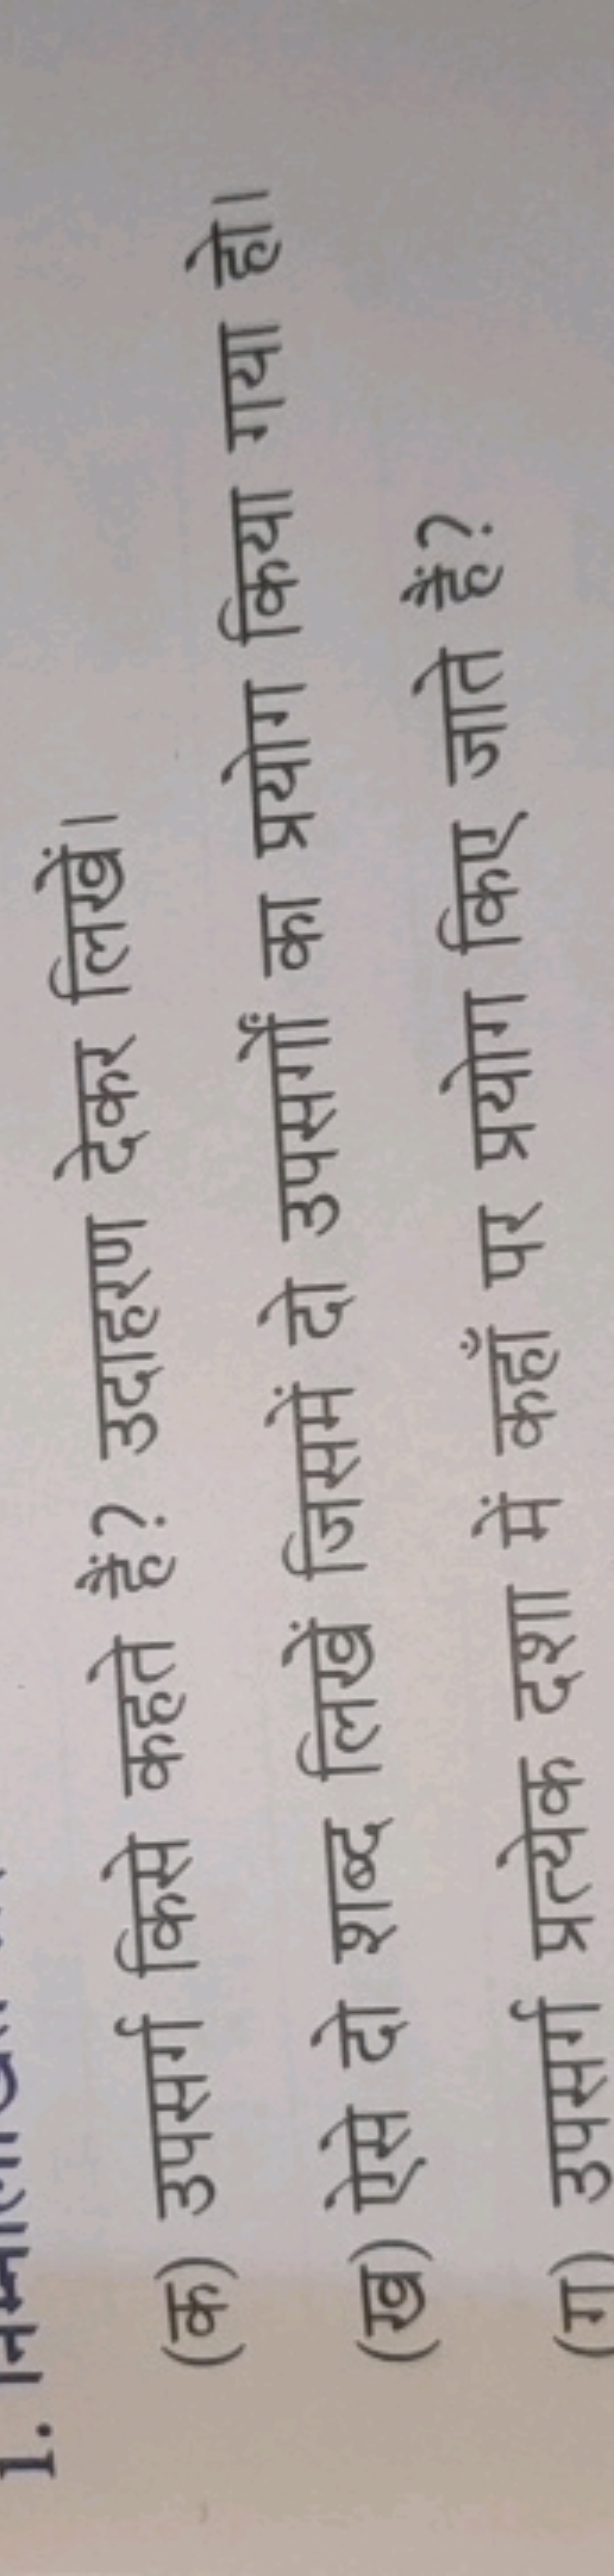 1.
(क) उपसर्ग किसे कहते हैं? उदाहरण देकर लिखें।
(ख) ऐसे दो शब्द लिखें जिसमें दो उपसर्गों का प्रयोग किया गया हो।
(ग) उपसर्ग प्रत्येक दशा में कहाँ पर प्रयोग किए जाते हैं?